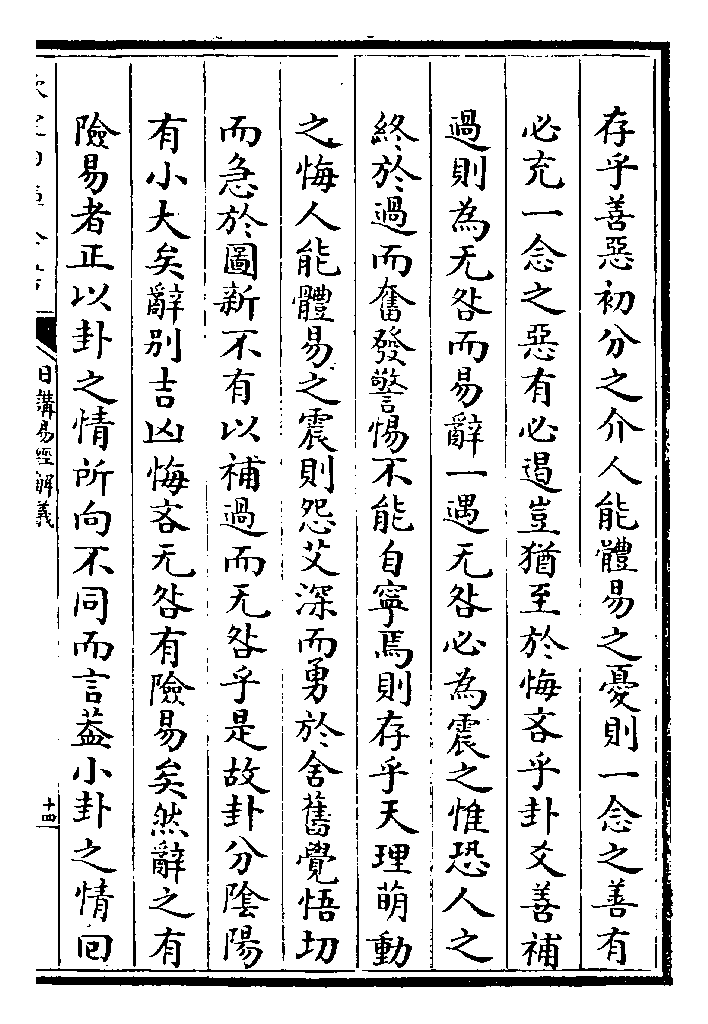 存乎善惡初分之介人能體易之憂則一念之善有
必充一念之惡有必遏豈猶至於悔吝乎卦爻善補
過則為无咎而易辭一遇无咎必為震之惟恐人之
終於過而奮發警惕不能自寧焉則存乎天理萌動
之悔人能體易之震則怨艾深而勇於舍舊覺悟切
而急於圖新不有以補過而无咎乎是故卦分陰陽
有小大矣辭别吉凶悔吝无咎有險易矣然辭之有
險易者正以卦之情所向不同而言葢小卦之情回
日講易經解義
十四